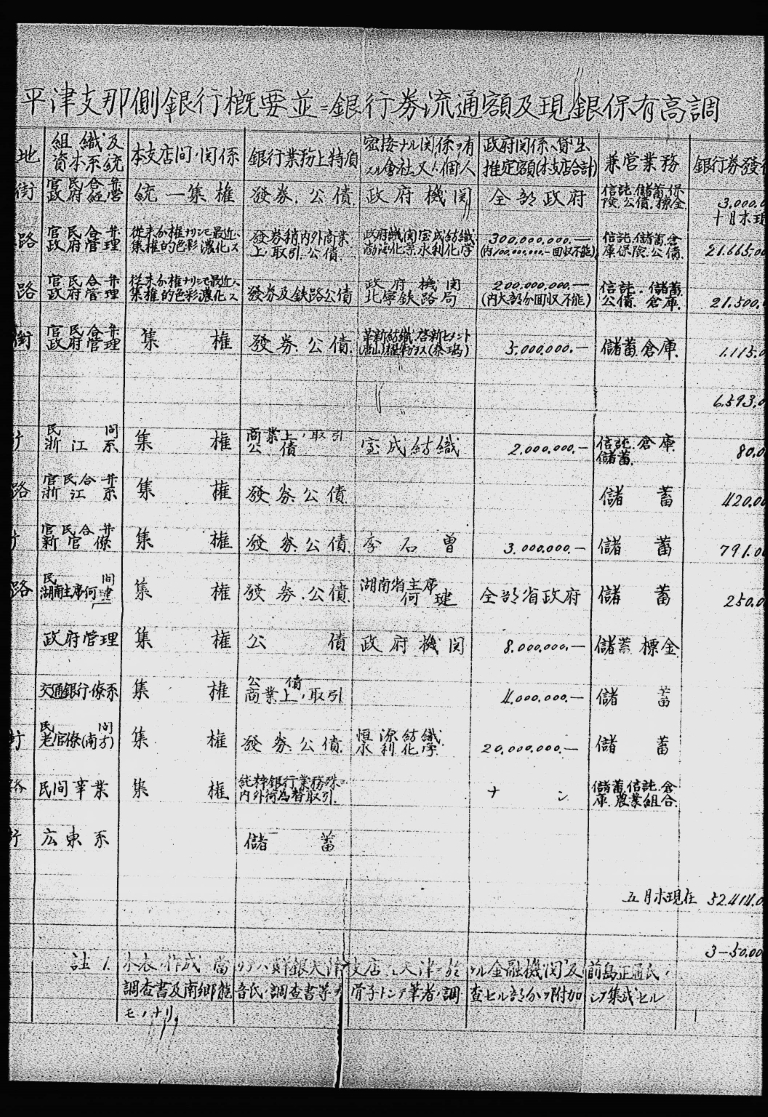 平津支那側銀行概要並ニ銀行券流通額及現銀保有高調
地 組織及資本系統 本支店間ノ関係 銀行業務上特項 密接ナル関係ヲ有スル会社又ハ個人 政府関係ヘ貸出推定額(本支店合計) 兼営業務 銀行券発
街 官民合弁政府経営 統一集権 發券、公債 政府機関 全部政府 信託、儲蓄、保険、公債、標金 3,000,0
十月末現
路 官民合弁政府管理 従来分権ナリシモ最近ハ集権的色彩濃化ス 發券精内外商業上ノ取引、公債 300,000,000.— 信託、儲蓄、倉庫、保険、公債 21,665,00
路 官民合弁政府管理 従来分権ナリシモ最近ハ集権的色彩濃化ス 發券及鉄路公債 政府機関北寧鉄路局 200,000,000.—(内大部分回収不能) 信託、儲蓄公債、倉庫 21,500,
街 官民合弁政府管理 集権 發券、公債 5,000,000.— 儲蓄、倉庫 1,115,0
6,593,0
行 民間浙江系 集権 商業上ノ取引公債 宝成紡織 2,000,000.— 信託、倉庫儲蓄 80,0
路 官民合弁浙江系 集権 發券公債 儲蓄 420,0
行 官民合弁新官僚 集権 發券公債 李石曽 3,000,000.— 儲蓄 791,0
路 民間湖南主席何鍵 集権 發券、公債 湖南省主席何鍵 全部省政府 儲蓄 250,0
政府管理 集権 公債 政府機関 8,000,000.— 儲蓄標金
交通銀行係系 集権 公債商業上ノ取引 4,000,000.— 儲蓄
行 民間老官僚(南方) 集権 發券公債 恒源紡織永利化学 20,000,000.— 儲蓄
路 民間事業 集権 純粋銀行業務殊ニ内外何為替取引 ナシ 儲蓄、信託、倉庫、農業組合
行 広東系 儲蓄
五月末現在 52,414,0
3-50,00
註 1. 本表ノ作成ニ當リテハ鮮銀天津支店ノ天津ニ於ケル金融機関及前島正道氏ノ
調査書及南郷龍音氏ノ調査書等ヲ骨子トシテ筆者ノ調査セル部分ヲ附加シテ集成セル
モノナリ